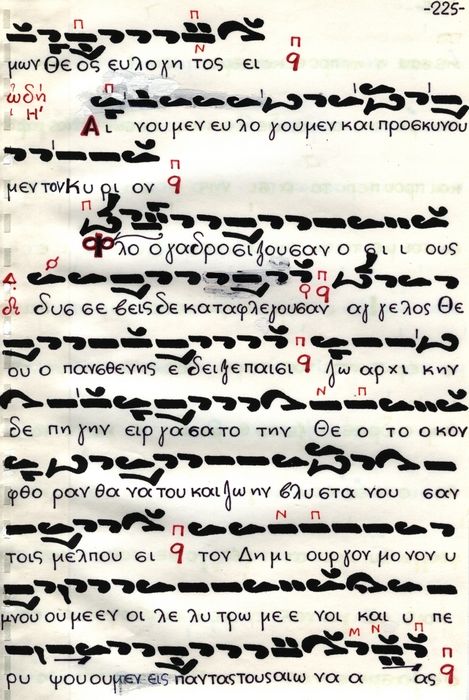 -225-
μων Θε ος ευ λο γη τος ει
ᾠδή Η'
Αι νου μεν ευ λο γου μεν και προσκυνου
μεν τον Κυ ρι ον
Φλο ο γα δροσιζουσαν ο σι ι ους
δυσ σε βεις δε καταφλεγουσαν αγ γελος Θε
ου ο πανσθενης ε δειξε παισι ζω αρχι κην
δε πη γην ειργασατο την Θε ο το ο κον
φθο ραν θα να του και ζω ην βλυ στα νου σαν
τοις μελπου σι τον Δημι ουργον μο νον υ
μνου ου με εν οι λε λυ τρω με ε νοι και υ πε
ρυ ψου ου μεν εις παντας τους αιω να α ας